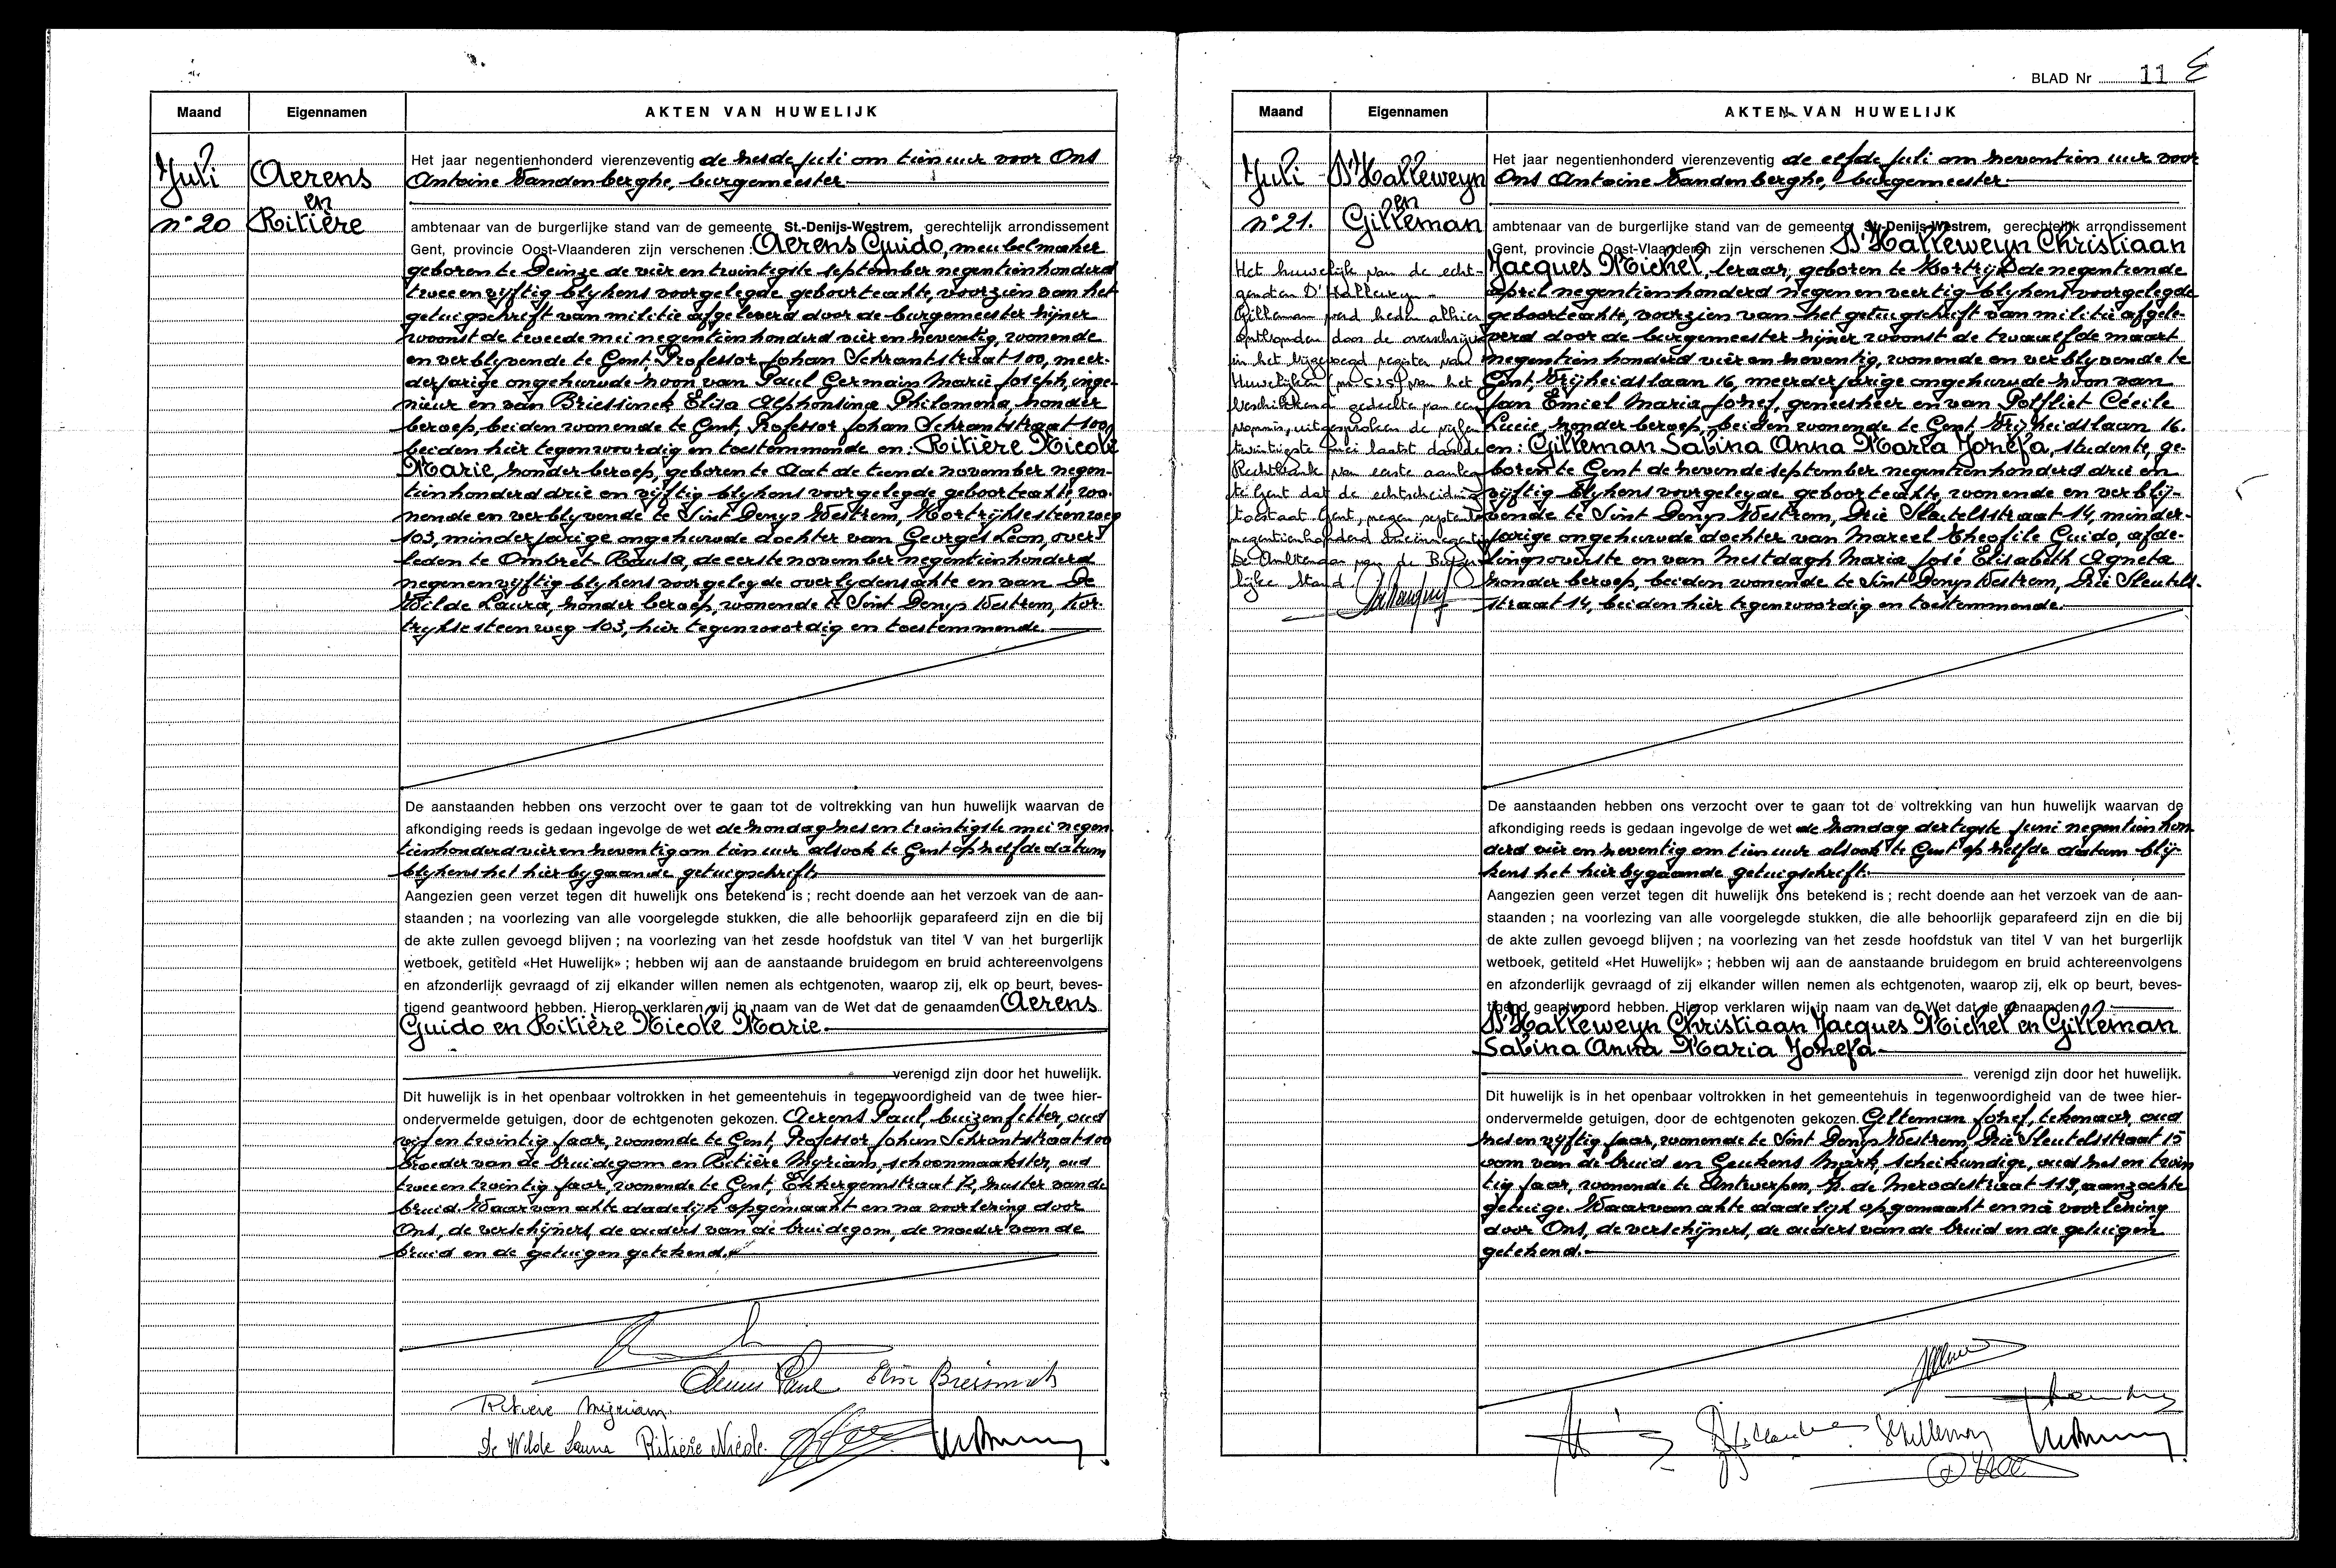 Maand Eigennamen AKTEN VAN HUWELIJK
Juli Aerens Het jaar negentienhonderd vierenzeventig de zesde Juli om tien uur voor Ons
Antoine Vandenberghe, burgemeester
en
n° 20 Ritière ambtenaar van de burgerlijke stand van de gemeente St.-Denijs-Westrem, gerechtelijk arrondissement
Gent, provincie Oost-Vlaanderen zijn verschenen : Aerens Guido, meubelmaker
geboren te Deinze de vier en twintigste september negentienhonderd
twee en vijftig blijkens voorgelegde geboorteakte, voorzien van het
getuigschrift van militie afgeleverd door de burgemeester zijner
woonst de tweede mei negentienhonderd vier en zeventig, wonende
en verblijvende te Gent, Professor Johan Schrantstraat 100, meer-
derjarige ongehuwde zoon van Paul Germain Marie Joseph, inge-
nieur en van Briessinck Elisa Alphonsina Philomena, zonder
beroep, beiden wonende te Gent, Professor Johan Schrantstraat 100,
beiden hier tegenwoordig en toestemmende en: Ritière Nicole
Marie, zonder beroep, geboren te Aat de tiende november negen-
tienhonderd drie en vijftig blijkens voorgelegde geboorteakte, wo-
nende en verblijvende te Sint Denijs Westrem, Kortrijksesteenweg
103, minderjarige ongehuwde dochter van Georges Léon, over-
leden te Ombret-Rausa, de eerste november negentienhonderd
negenenvijftig blijkens voorgelegde overlijdensakte en van De
Wilde Laura, zonder beroep, wonende te Sint Denijs Westrem, Kor-
trijksesteenweg 103, hier tegenwoordig en toestemmende.
De aanstaanden hebben ons verzocht over te gaan tot de voltrekking van hun huwelijk waarvan de
afkondiging reeds is gedaan ingevolge de wet de zondag zes en twintigste mei negen
tienhonderd vier en zeventig om tien uur alsook te Gent op zelfde datum
blijkens het hierbijgaande getuigschrift.
Aangezien geen verzet tegen dit huwelijk ons betekend is ; recht doende aan het verzoek van de aan-
staanden ; na voorlezing van alle voorgelegde stukken, die alle behoorlijk geparafeerd zijn en die bij
de akte zullen gevoegd blijven ; na voorlezing van het zesde hoofdstuk van titel V van het burgerlijk
wetboek, getiteld «Het Huwelijk» ; hebben wij aan de aanstaande bruidegom en bruid achtereenvolgens
en afzonderlijk gevraagd of zij elkander willen nemen als echtgenoten, waarop zij, elk op beurt, beves-
tigend geantwoord hebben. Hierop verklaren wij in naam van de Wet dat de genaamden Aerens
Guido en Ritière Nicole Marie.
verenigd zijn door het huwelijk.
Dit huwelijk is in het openbaar voltrokken in het gemeentehuis in tegenwoordigheid van de twee hier-
ondervermelde getuigen, door de echtgenoten gekozen. Aerens Paul, buizenfitter, oud
vijf en twintig jaar, wonende te Gent, Professor Johan Schrantstraat 100
broeder van de bruidegom en Ritière Myriam, schoonmaakster, oud
twee en twintig jaar, wonende te Gent, Ekkergemstraat 72, zuster van de
bruid. Waarvan akte dadelijk opgemaakt en na voorlezing door
Ons, de verschijners, de ouders van de bruidegom, de moeder van de
bruid en de getuigen getekend.
Aerens Paul
Ritière Myriam
De Wilde Laura Ritière Nicole.
BLAD Nr 11
Maand Eigennamen AKTEN VAN HUWELIJK
Juli D'Halleweyn Het jaar negentienhonderd vierenzeventig de elfde Juli om zeventien uur voor
Ons Antoine Vandenberghe, burgemeester
en
n° 21. Gilleman ambtenaar van de burgerlijke stand van de gemeente St.-Denijs-Westrem, gerechtelijk arrondissement
Gent, provincie Oost-Vlaanderen zijn verschenen : D'Halleweyn Christiaan
Jacques Michel, leraar, geboren te Kortrijk de negentiende
april negentienhonderd negen en veertig blijkens voorgelegde
geboorteakte, voorzien van het getuigschrift van militie afgele-
verd door de burgemeester zijner woonst de twaalfde maart
negentienhonderd vier en zeventig, wonende en verblijvende te
Gent, Vrijheidslaan 16, meerderjarige ongehuwde zoon van
Jan Emiel Maria Jozef, geneesheer en van Potfliet Cécile
Lucie, zonder beroep, beiden wonende te Gent, Vrijheidslaan 16.
en: Gilleman Sabina Anna Maria Jozefa, studente, ge-
boren te Gent de zevende september negentienhonderd drie en
vijftig blijkens voorgelegde geboorteakte, wonende en verblij-
vende te Sint Denijs Westrem, Drie Sleutelsstraat 14, minder-
jarige ongehuwde dochter van Marcel Theofile Guido, afde-
lingsoverste en van Mestdagh Maria José Elisabeth Agneta
zonder beroep, beiden wonende te Sint Denijs Westrem, Drie Sleutels-
straat 14, beiden hier tegenwoordig en toestemmende.
Het huwelijk van de echt-
genoten D'Halleweyn -
Gilleman werd heden alhier
ontbonden door de overschrijving
in het bijgevoegd register van
Huwelijken (nr 525) van het
beschikkend gedeelte van een
vonnis, uitgesproken de vijfen
twintigste mei laatst door de
Rechtbank van eerste aanleg
te Gent dat de echtscheiding
toestaat. Gent, negen september
negentienhonderd
De Ambtenaar van de Burger-
lijke Stand.
De aanstaanden hebben ons verzocht over te gaan tot de voltrekking van hun huwelijk waarvan de
afkondiging reeds is gedaan ingevolge de wet de zondag dertigste juni negentienhon
derd vier en zeventig om tien uur alsook te Gent op zelfde datum blij-
kens het hierbijgaande getuigschrift.
Aangezien geen verzet tegen dit huwelijk ons betekend is ; recht doende aan het verzoek van de aan-
staanden ; na voorlezing van alle voorgelegde stukken, die alle behoorlijk geparafeerd zijn en die bij
de akte zullen gevoegd blijven ; na voorlezing van het zesde hoofdstuk van titel V van het burgerlijk
wetboek, getiteld «Het Huwelijk» ; hebben wij aan de aanstaande bruidegom en bruid achtereenvolgens
en afzonderlijk gevraagd of zij elkander willen nemen als echtgenoten, waarop zij, elk op beurt, beves-
tigend geantwoord hebben. Hierop verklaren wij in naam van de Wet dat de genaamden
D'Halleweyn Christiaan Jacques Michel en Gilleman
Sabina Anna Maria Jozefa.
verenigd zijn door het huwelijk.
Dit huwelijk is in het openbaar voltrokken in het gemeentehuis in tegenwoordigheid van de twee hier-
ondervermelde getuigen, door de echtgenoten gekozen. Gilleman Jozef, tekenaar, oud
zes en vijftig jaar, wonende te Sint Denijs Westrem, Drie Sleutelsstraat 15
oom van de bruid en Geukens Mark, scheikundige, oud zes en twin
tig jaar, wonende te Antwerpen, K. de Merodestraat 119, aanzochte
getuige. Waarvan akte dadelijk opgemaakt en na voorlezing
door Ons, de verschijners, de ouders van de bruid en de getuigen
getekend.
SGilleman